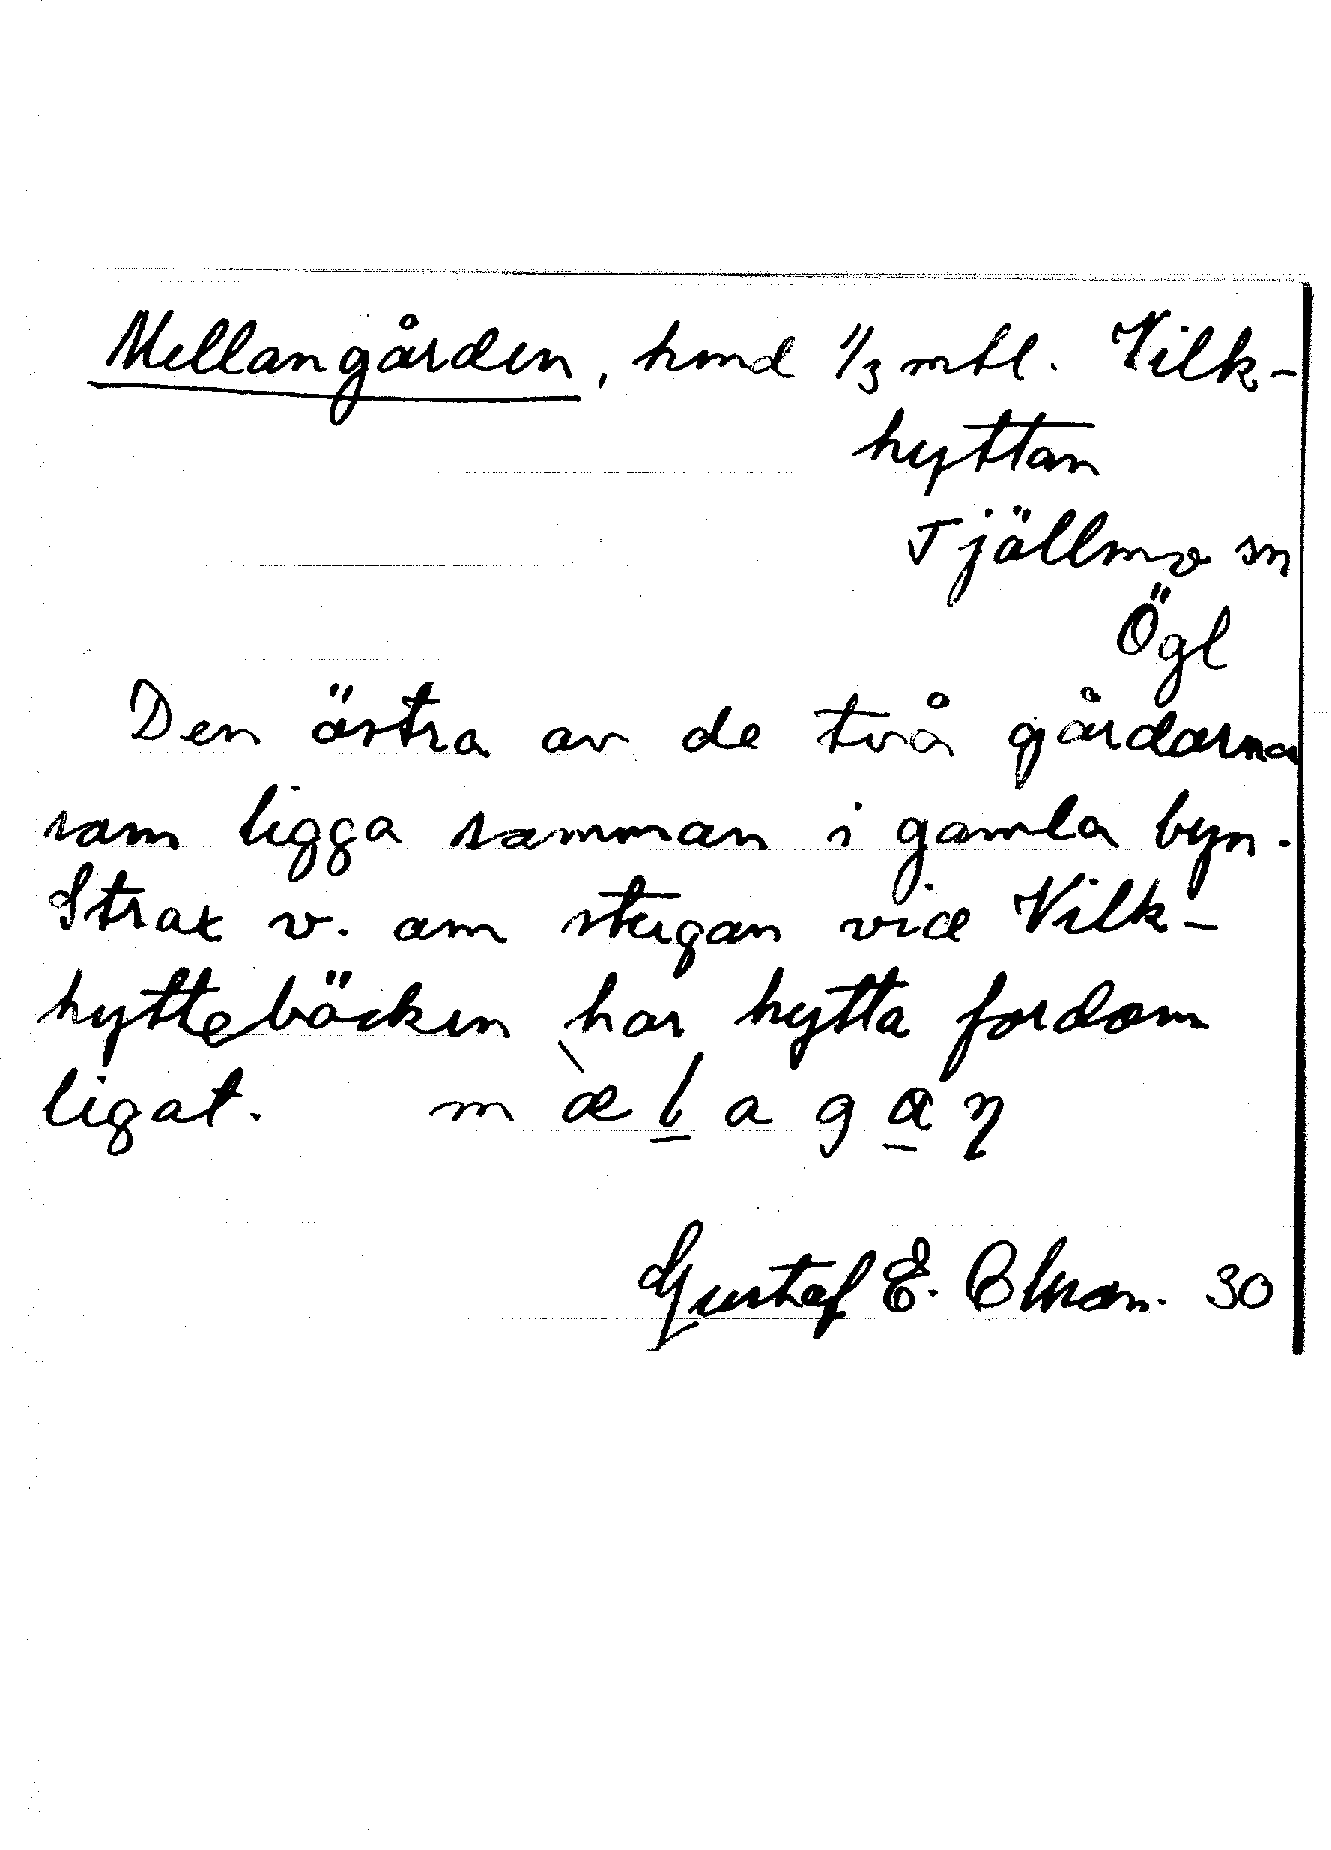 Mellangården, hmd 1/3 mtl. Vilk-
hyttan
Tjällmo sn
Ögl
Den östra av de två gårdarna
som ligga samman i gamla byn.
Strax v. om stugan vid Vilk-
hyttebäcken har hytta fordom
ligat. m æ̀ l̲ a g a̲ ŋ
Gustaf E. 30